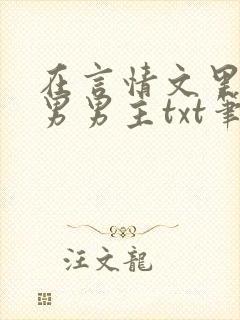 在言情文里
男男主txt筆
汪文龍